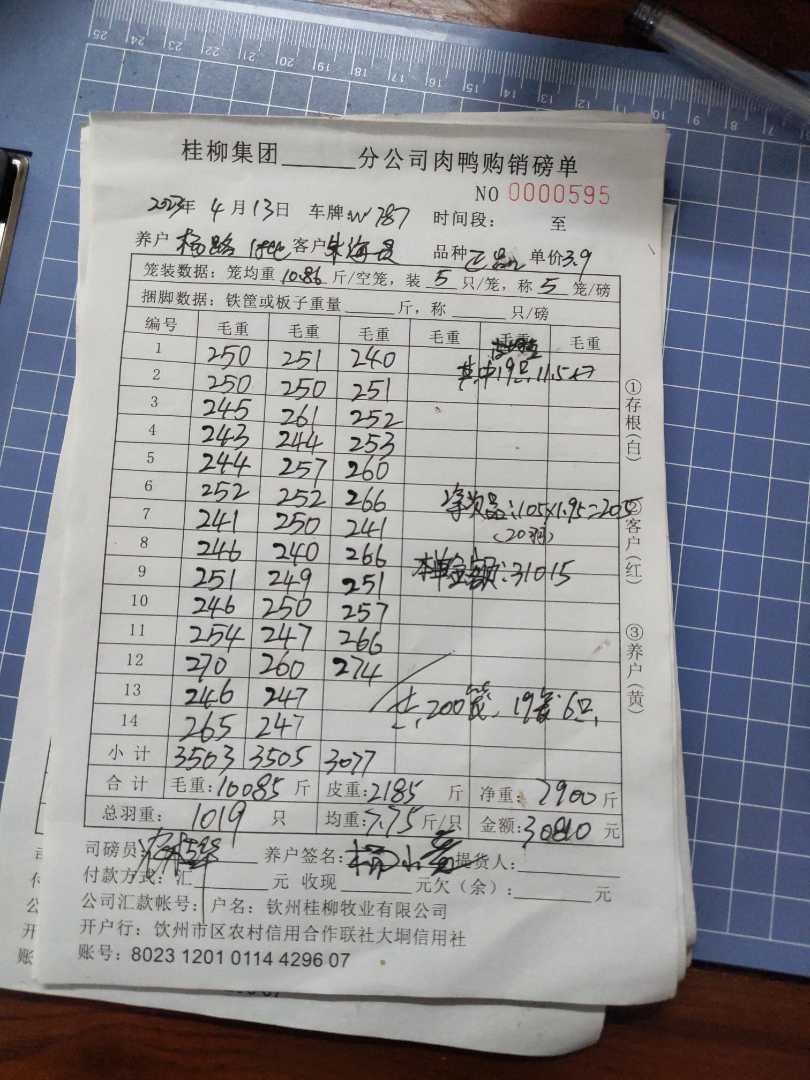 桂柳集团______分公司肉鸭购销磅单
NO 0000595
2023年 4 月 13日 车牌:W787 时间段: 至
养户 杨路 客户 朱海 品种 正品 单价3.9
笼装数据: 笼均重 10.86 斤/空笼, 装 5 只/笼, 称 5 笼/磅
捆脚数据: 铁筐或板子重量______斤, 称______只/磅
编号 毛重 毛重 毛重 毛重 毛重 毛重
1 250 251 240
其中19只11.5斤
2 250 250 251
3 245 261 252
4 243 244 253
5 244 257 260
6 252 252 266
净次品:105×1.95=205
7 241 250 241
(20羽)
8 246 240 266
本单金额:31015
9 251 249 251
10 246 250 257
11 254 247 266
12 270 260 274
13 246 247
200笼, 19笼6只,
14 265 247
小计 3503 3505 3077
合计 毛重:10085 斤 皮重:2185 斤 净重: 7900 斤
总羽重: 1019 只 均重:7.75斤/只 金额:30810 元
司磅员: 养户签名: 提货人:
付款方式: 汇______元 收现______元欠(余):______元
公司汇款帐号: 户名: 钦州桂柳牧业有限公司
开户行: 钦州市区农村信用合作联社大垌信用社
账号: 8023 1201 0114 4296 07
①存根(白)
②客户(红)
③养户(黄)